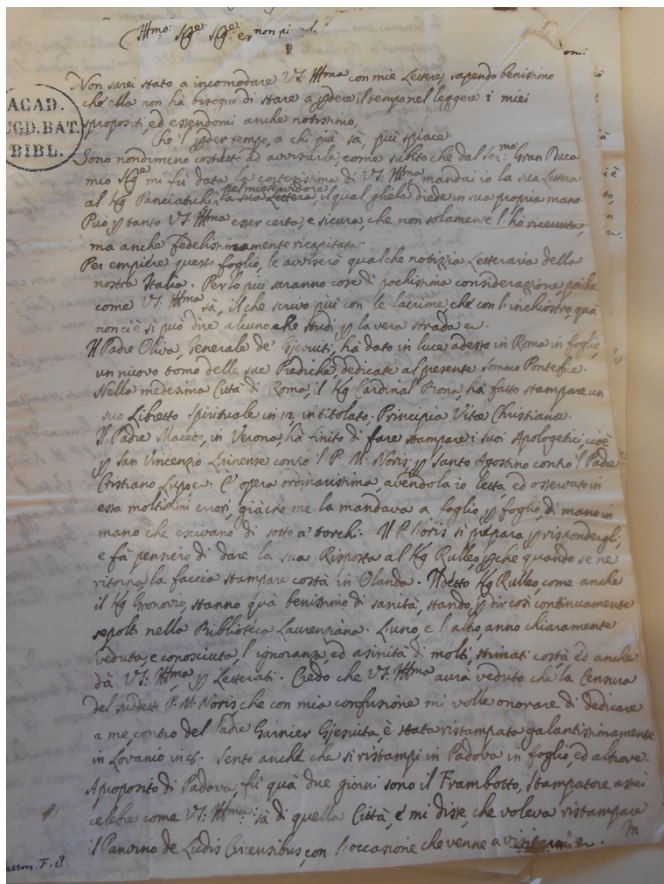 Ill.mo Sig.re Sig.re e
non pi
omi
ACAD.
UGD.BAT.
BIBL.
Non sarei stato a incomodare V.S. Ill.ma con mie Lettere, sapendo benissimo
che ella non hà bisogno di stare a perdere il tempo nel leggere i miei
spropositi, ed essendomi anche notissimo,
Che 'l perder tempo, a chi più sà, più spiace.
Sono nondimeno costretto ad avvisarle, come subito che dal Ser.mo Gran Duca
mio Sig.re mi fù data la cortesissima di V.S. Ill.ma mandai io la sua Lettera
al Sig. Panciatichi, la sua Lettera, il qual gliela diede in sua propria mano.
per mio servidore
Può per tanto V.S. Ill.ma esser certa, e sicura, che non solamente l'hà ricevuta,
ma anche fedelissimamente ricapitata.
Per empiere questo foglio, le avviserò qualche notizia Letteraria della
nostra Italia. Per lo più saranno cose di pochissima considerazione, poiche
come V.S. Ill.ma sà, il che scrivo più con le lacrime, che con l'inchiostro, quà
non ci è si può dire alcuno che studi per la vera strada
Il Padre Oliva, Generale de' Gjesuiti, ha dato in luce adesso in Roma in foglio,
un nuovo tomo delle sue Prediche, dedicate al presente Sommo Pontefice.
Nella medesima Città di Roma, il Sig. Cardinal Bona, hà fatto stampare un
suo Libretto Spirituale in 12 intitolato. Principia Vitæ Christianæ.
Il Padre Macedo, in Verona, hà finito di fare stampare i suoi Apologetici, cioè
per San Vincenzio Lirinense contro 'l P. M. Noris, per Santo Agostino contro 'l Padre
Cristiano Lupo. È opera ordinarissima, avendola io letta, ed osservato in
essa moltissimi errori, giàche me la mandava a foglio, per foglio, di mano in
mano che escivano di sotto a' torchi. Il P. Noris si prepara per rispondergli,
e fà pensiero di dare la sua Risposta al Sig. Rulleo, perche quando se ne
ritorna, la faccia stampare costà in Olanda. Il detto Sig. Rulleo, come anche
il Sig. Gronovio, stanno quà benissimo di sanità, stando, per dir così continuamente
sepolti nella Biblioteca Laurenziana. L'uno, e l'altro, anno chiaramente
veduta, e conosciuta l'ignoranza, ed asinità di molti, stimati costà, ed anche
dà V.S. Ill.ma, per Letterati. Credo che V.S. Ill.ma aurà veduto che la Censura
del suddetto P. M. Noris che con mia confusione mi volle onorare di dedicare
a me, contro del Padre Garnier Gjesuita, è stata ristampata galantissimamente
in Lovanio in 8. Sento anche che si ristampi in Padova in foglio, ed altrove.
Aproposito di Padova, fù quà due giorni sono il Frambotto, Stampatore assai
celebre come V.S. Ill.ma sà di quella Città, e mi disse, che voleva ristampare
il Panvino de Ludis Circensibus, con l'occasione che venne a
m
Burm. F. 8